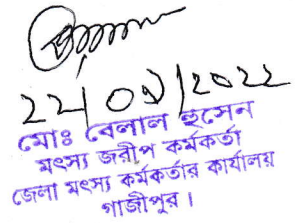 22/09/2022
মোঃ বেলাল হুসেন
মৎস্য জরীপ কর্মকর্তা
জেলা মৎস্য কর্মকর্তার কার্যালয়
গাজীপুর।